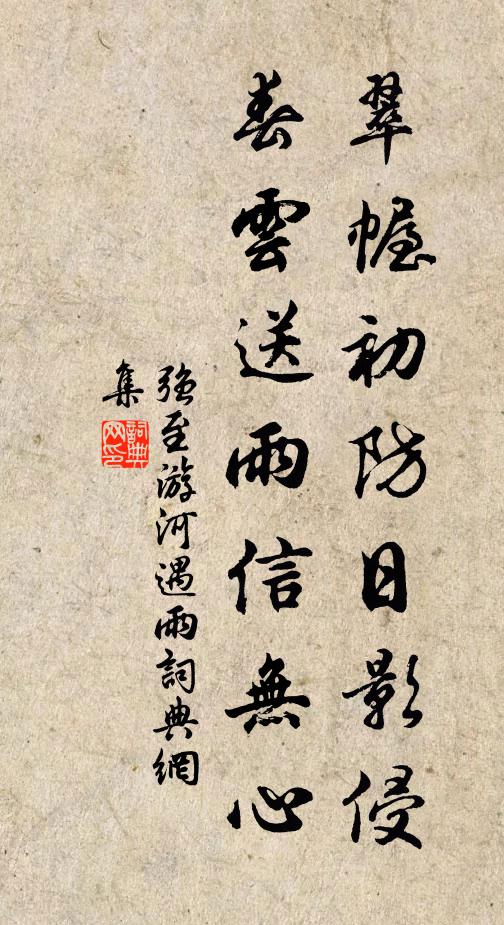 翠幄初防日影侵
春雲送雨信無心
強至游河遇雨詞典網
集
詞典
网印